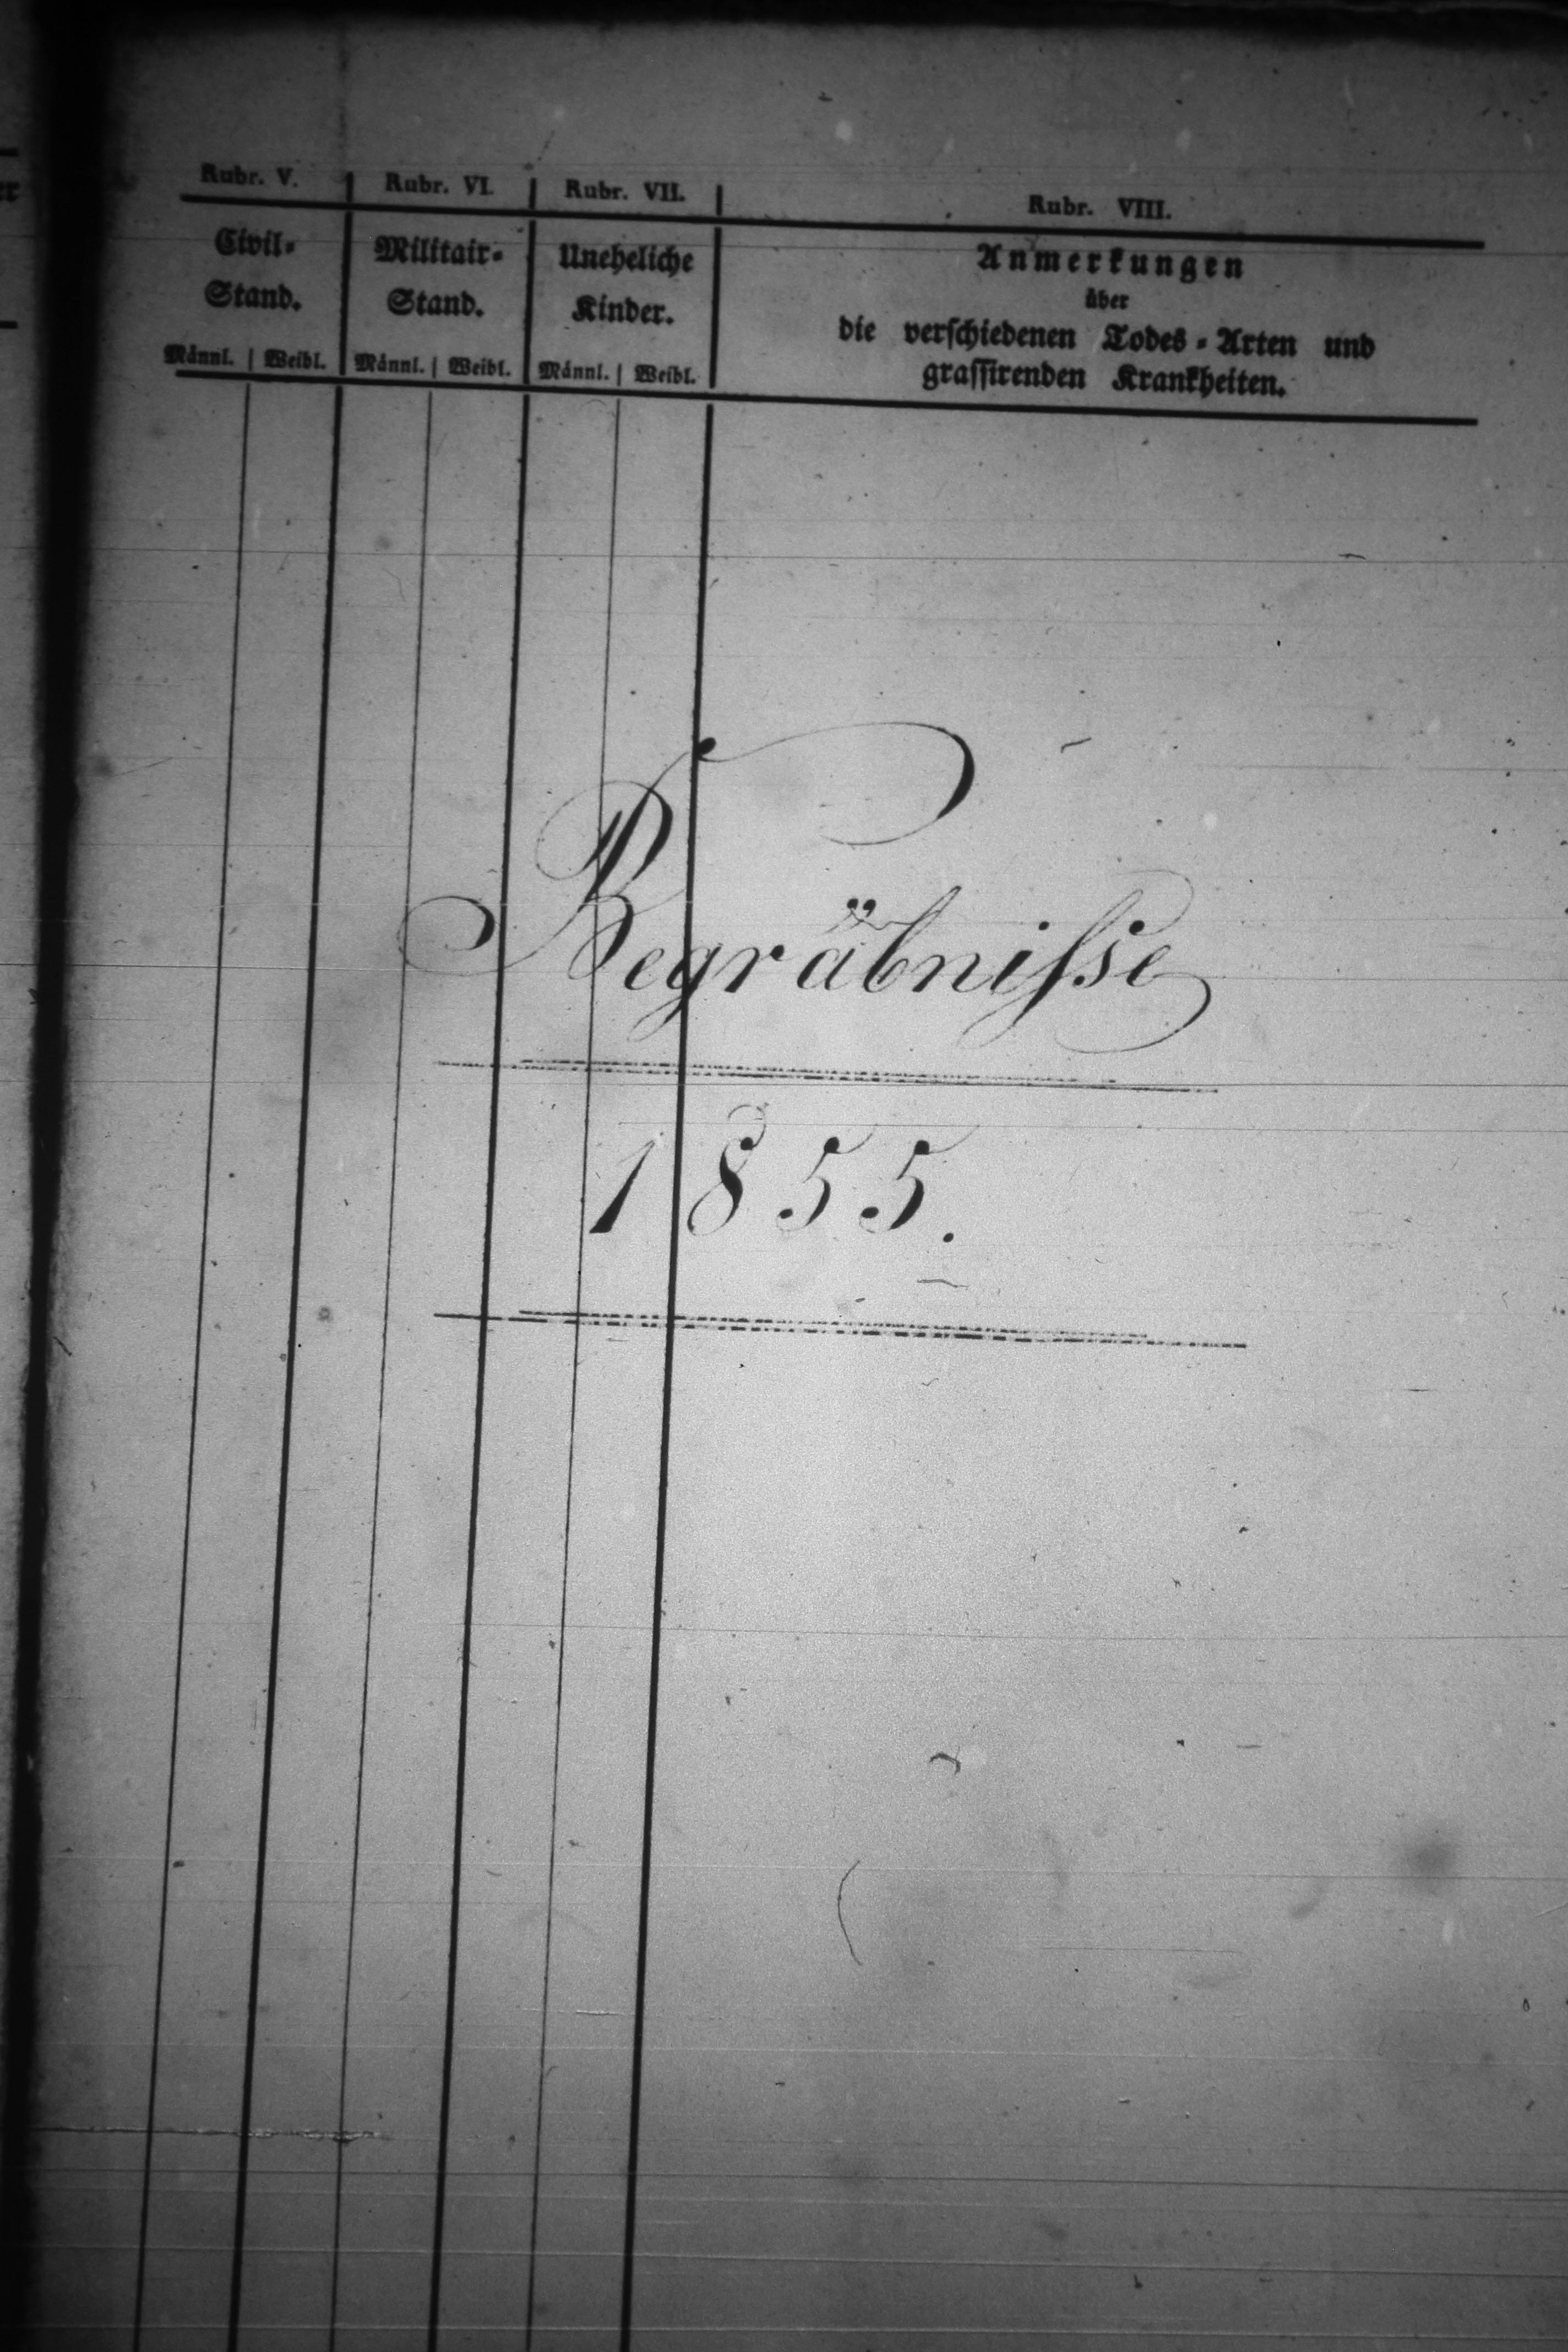 Rubr. V. Rubr. VI. Rubr. VII. Rubr. VIII.
Civil- Militair- Uneheliche Anmerkungen
Stand. Stand. Kinder. über
die verschiedenen Todes-Arten und
Männl. Weibl. Männl. Weibl. Männl. Weibl. grassirenden Krankheiten.
Begräbnisse
1855.